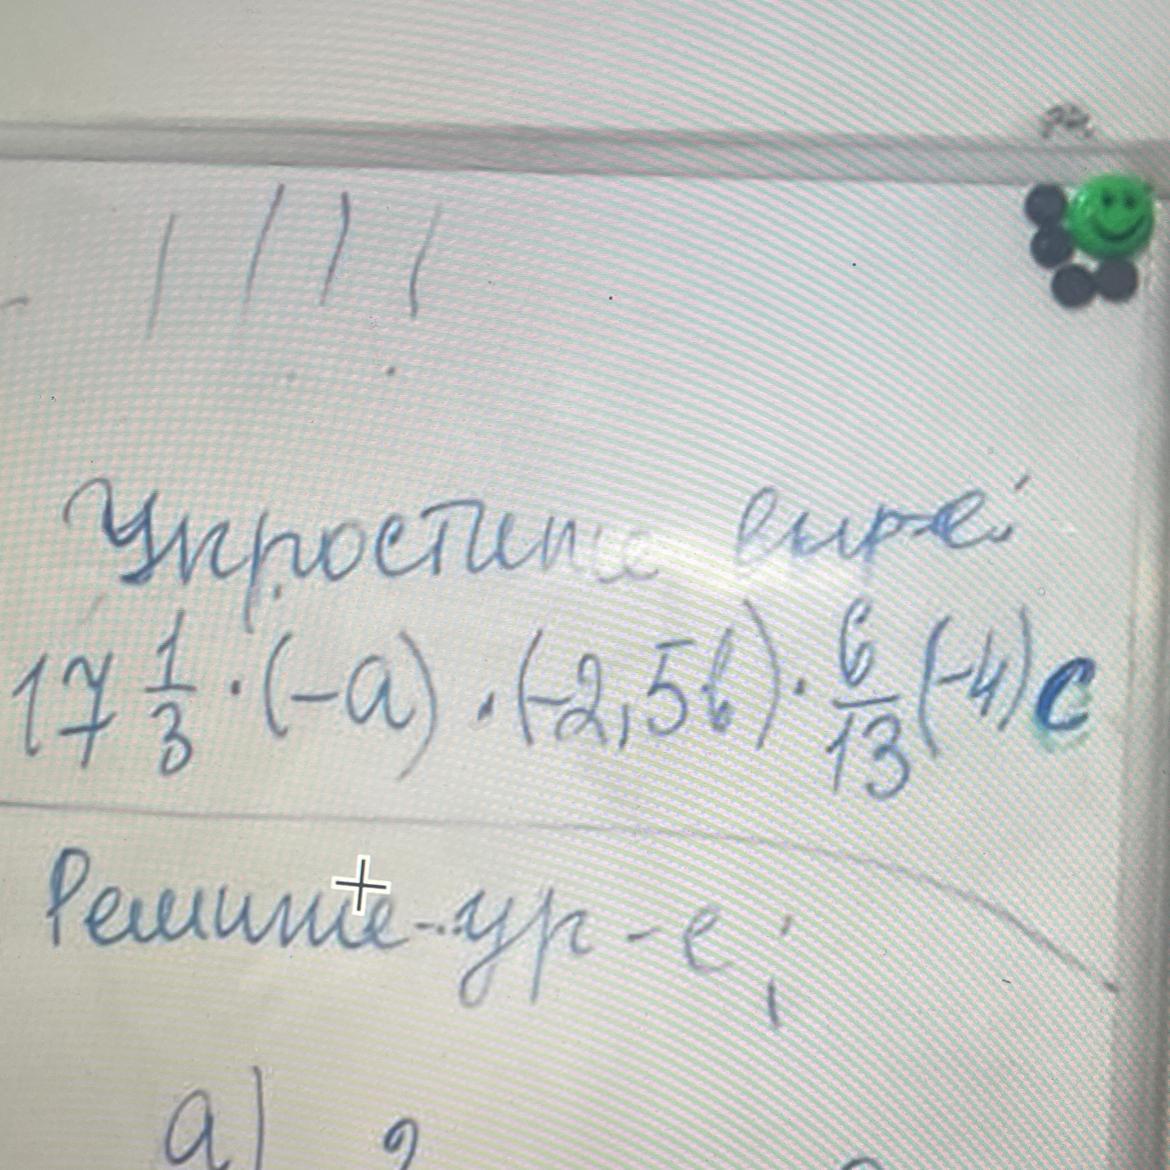 Упростите выр-е:
17 1/3 · (-a) · (-2,5b) · 6/13 (-4)c
Решите ур-е:
a) 2